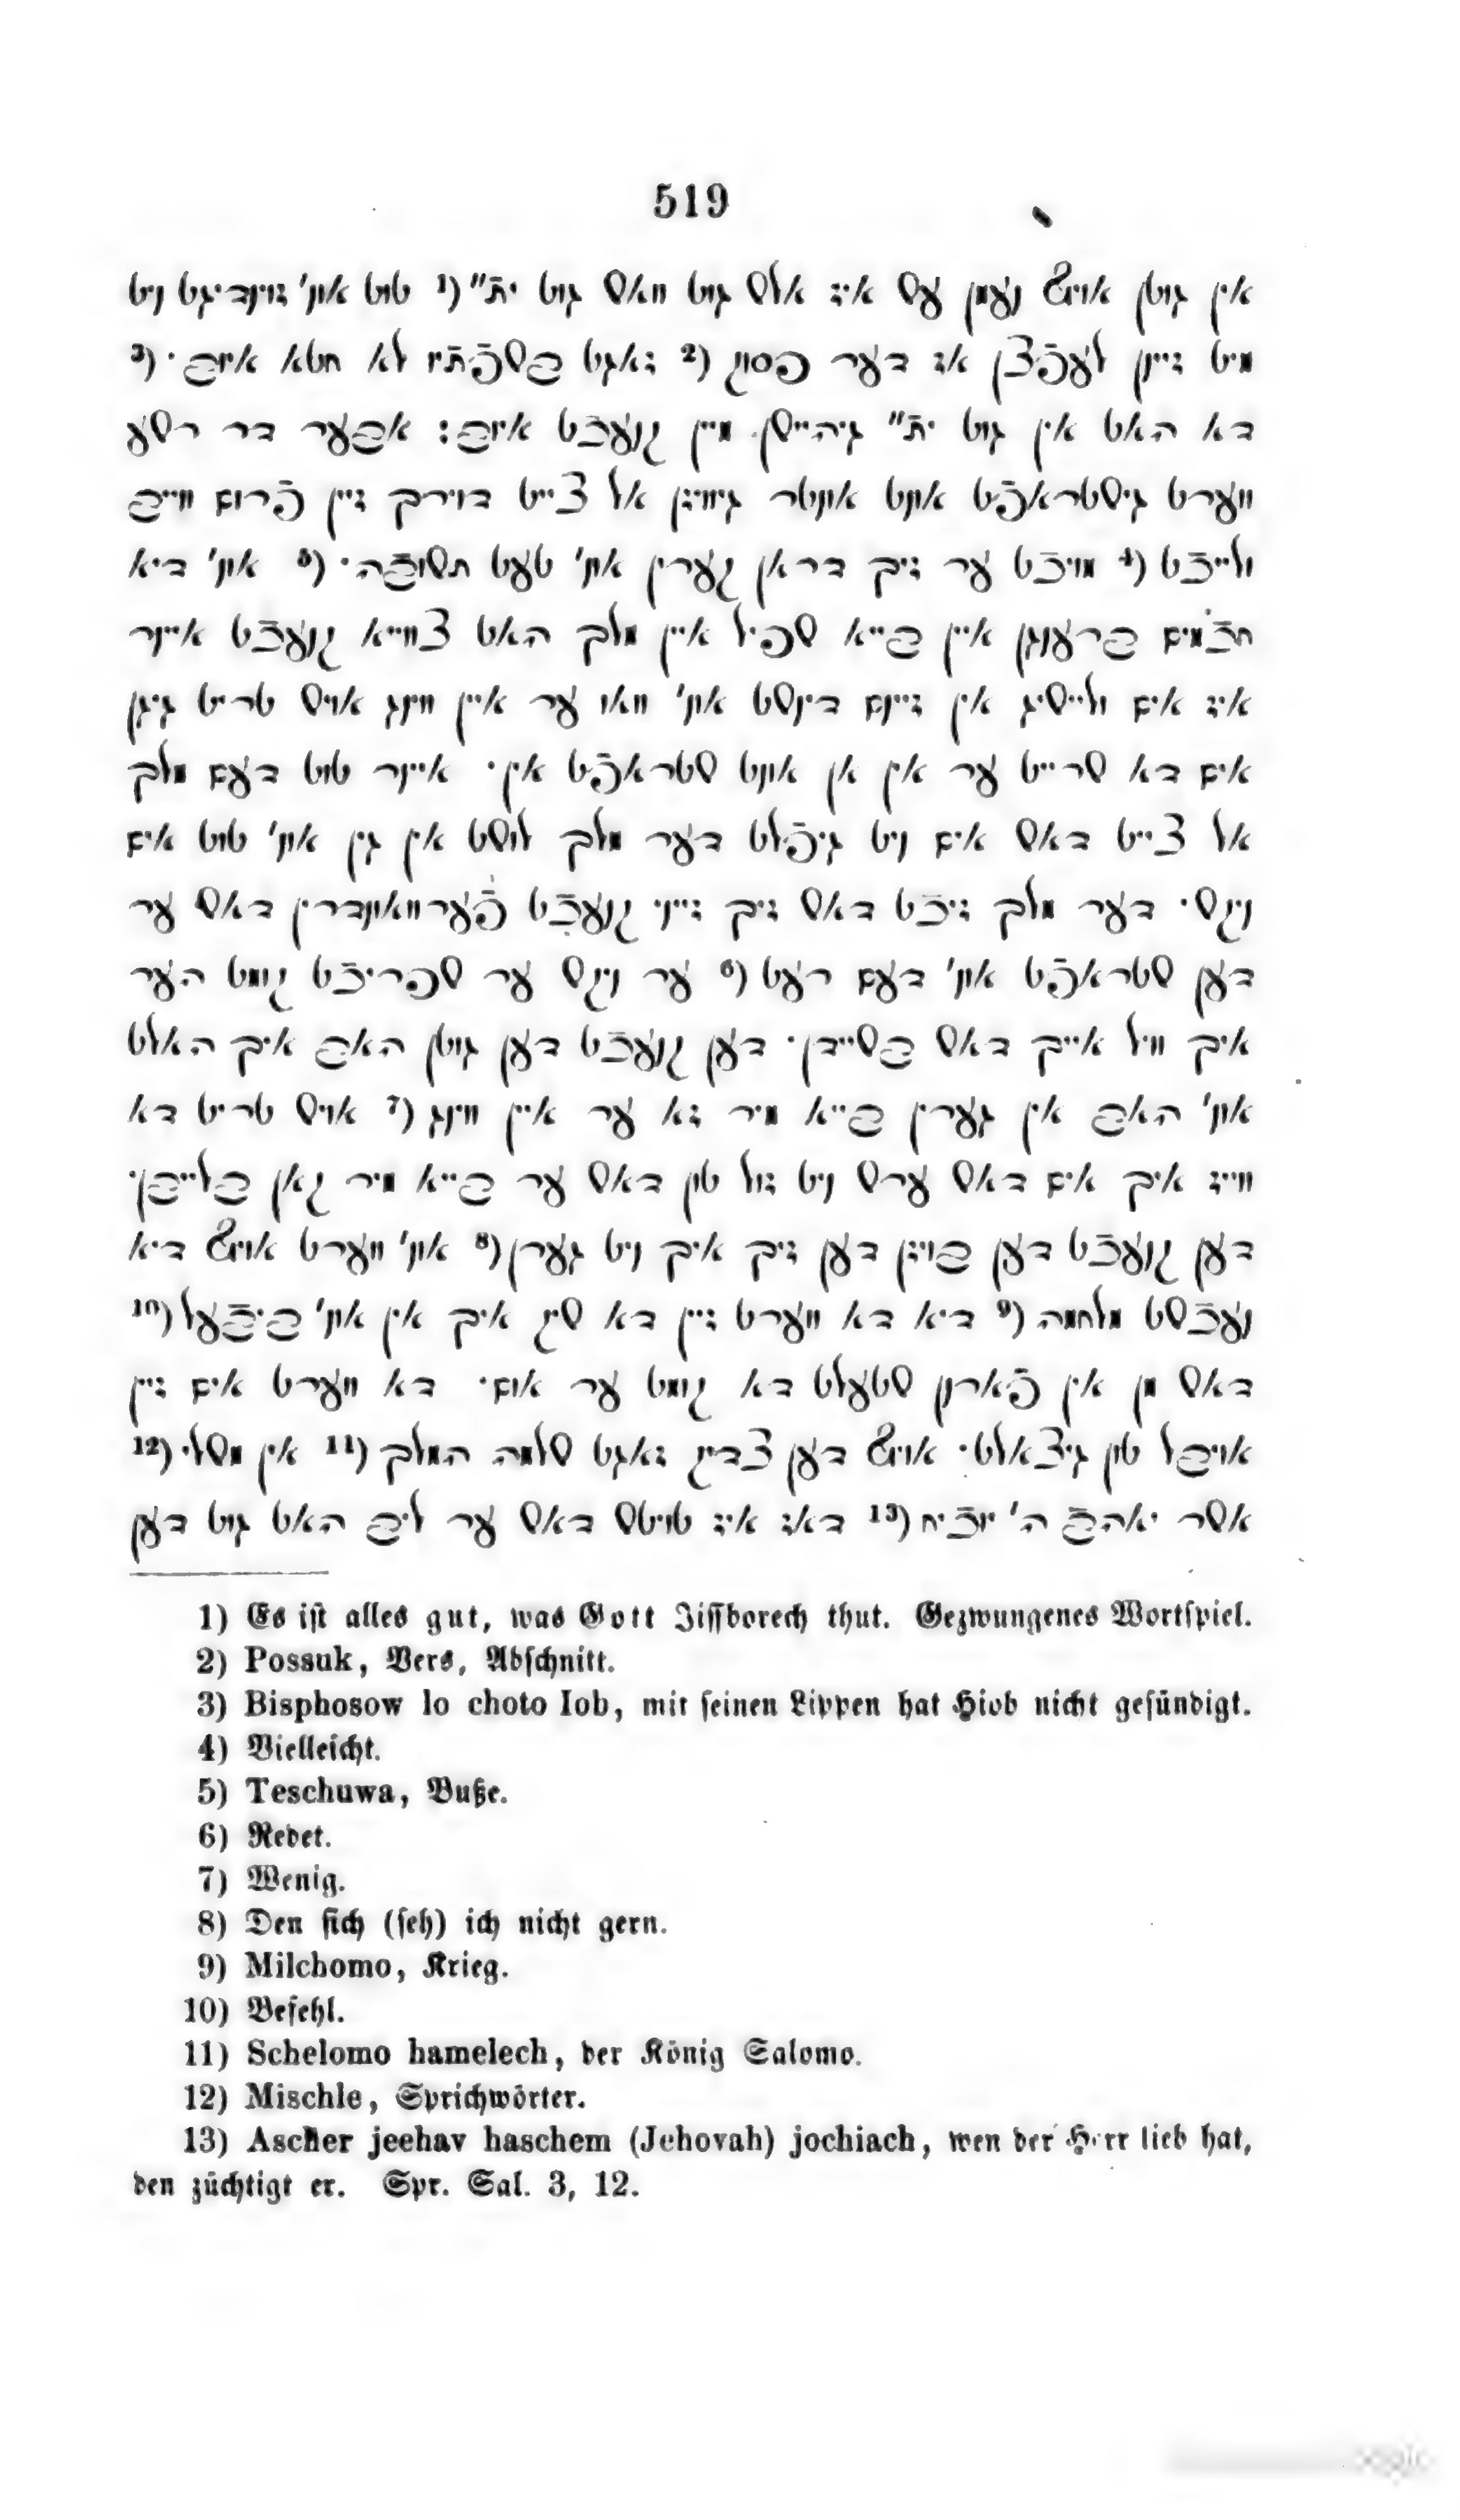 519
אין גוטן אויף נעמן עש איז אלש גוט וואש גוט ית״ (1 טוט אונ' זוינדיגט ניט
מיט זיין לעפֿצן אז דער פסוק (2 זאגט בשפֿתיו לא חטא איוב. (3
דא האט אין גוט ית״ גיהיישן מיין קנעכֿט איוב: אבער דר רשע
ווערט גישטראפֿט אונט אונטר גיוויזן אל צייט דוירך זיין פֿרום ווייב
ולייכֿט (4 מויכֿט ער זיך דראן קערין אונ' טעט תשובֿה. (5 אונ' דיא
חכֿמים ברענגן איין בייא שפיל איין מלך האט צווייא קנעכֿט איינר
איז אים ולייסיג אין זיינם דינשט אונ' וואו ער איין ווינג אויש טריט גיגן
אים דא שרייט ער אין אן אונט שטראפֿט אין. איינר טוט דעם מלך
אל צייט דאש אים ניט גיפֿלט דער מלך לושט אין גין אונ' טוט אים
ניקש. דער מלך זיכֿט דאש זיך זייני קנעכֿט פֿערוואונדרין דאש ער
דען שטראפֿט אונ' דעם רעט (6 ער ניקש ער שפריכֿט קומט הער
איך וויל אייך דאש בשיידן. דען קנעכֿט דען גוטן האב איך האלט
אונ' האב אין גערין בייא מיר זא ער איין ווינג (7 אויש טריט דא
ווייז איך אים דאש ערש ניט זול טון דאש ער בייא מיר קאן בלייבן.
דען קנעכֿט דען בויזן דען זיך איך ניט גערן (8 אונ' ווערט אויף דיא
נעכֿשט מלחמה (9 דיא דא ווערט זיין דא שיק איך אין אונ' ביפֿעל (10
דאש מן אין פֿארן שטעלט דא קומט ער אום. דא ווערט אים זיין
אויבל טון גיצאלט. אויף דען צדיק זאגט שלמה המלך (11 אין משלי (12
אשר יאהבֿ ה' יוכֿיח (13 דאז איז טויטש דאש ער ליב האט גוט דען
1) Es ist alles gut, was Gott Jissborech thut. Gezwungenes Wortspiel.
2) Possuk, Vers, Abschnitt.
3) Bisphosow lo choto Iob, mit seinen Lippen hat Hiob nicht gesündigt.
4) Vielleicht.
5) Teschuwa, Buße.
6) Redet.
7) Wenig.
8) Den sich (seh) ich nicht gern.
9) Milchomo, Krieg.
10) Befehl.
11) Schelomo hamelech, der König Salomo.
12) Mischle, Sprichwörter.
13) Ascher jeehav haschem (Jehovah) jochiach, wen der Herr lieb hat,
den züchtigt er. Spr. Sal. 3, 12.